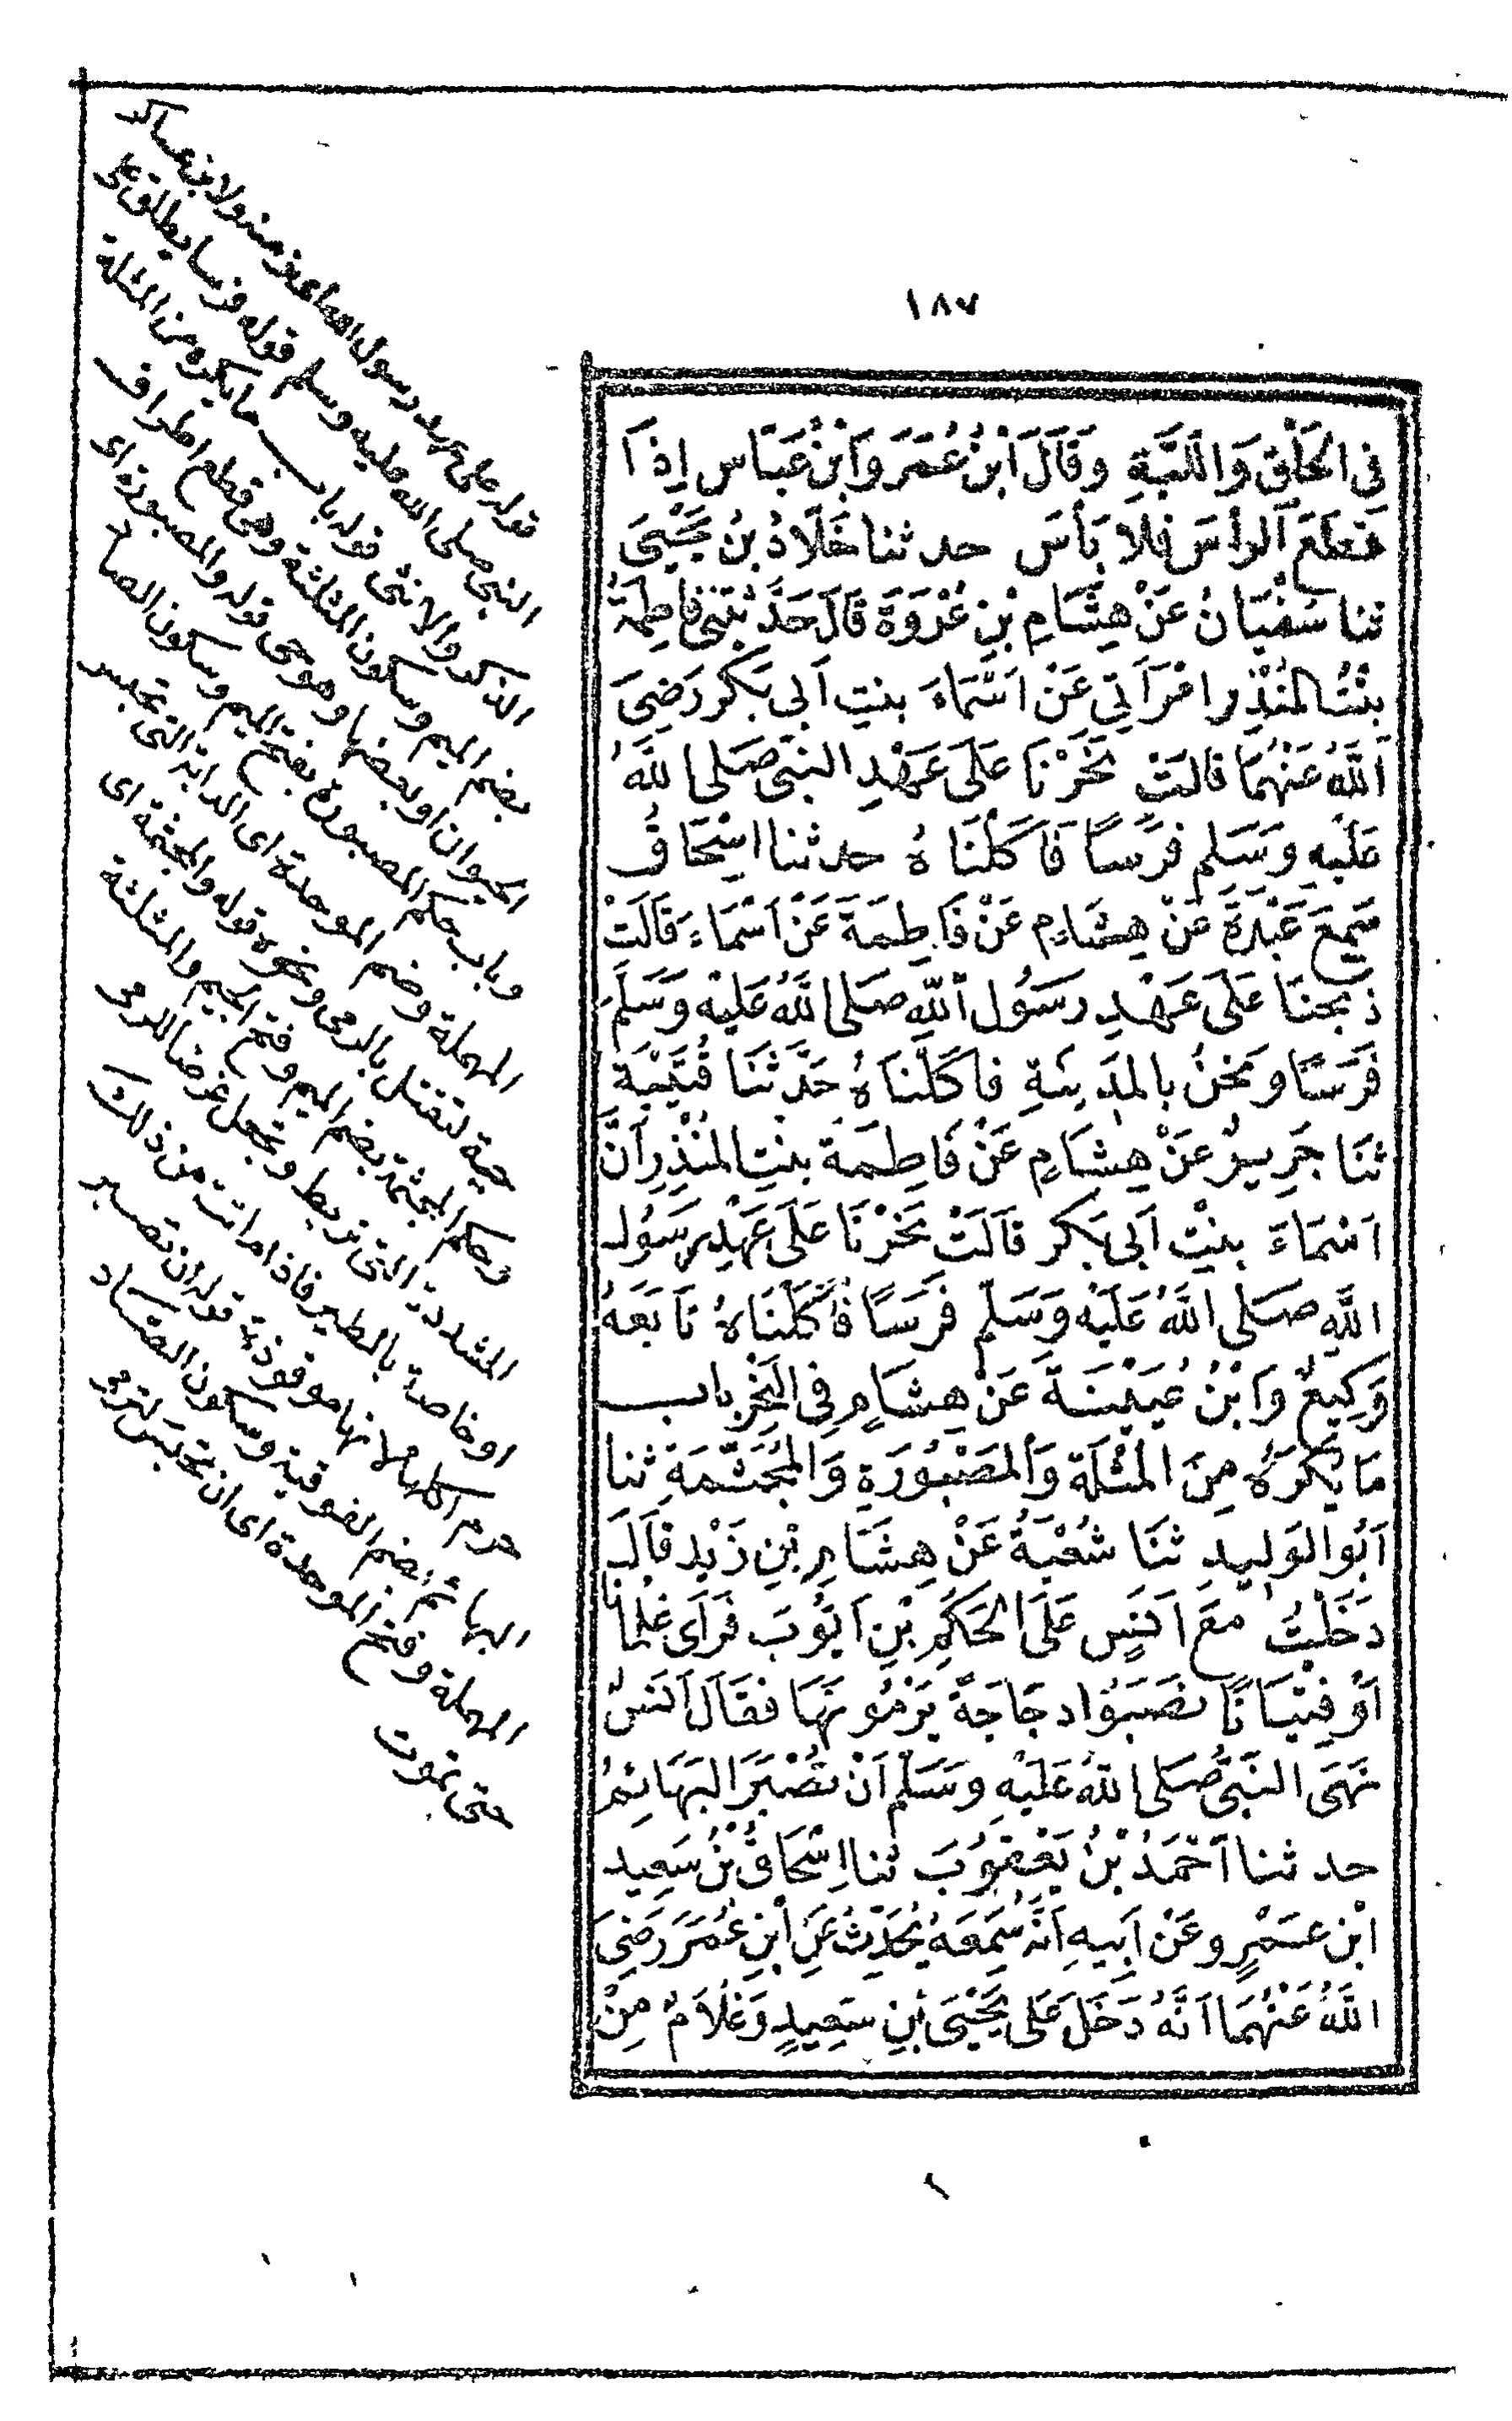 ١٨٧
فِي الحَلْقِ وَاللَّبَّةِ وَقَالَ ابْنُ عُمَرَ وَابْنُ عَبَّاس إِذَا
قَطَعَ الرأسَ فلا بَأسَ حدثنا خَلَّادُ بْنُ يَحْيَى
ثنا سُفْيَانُ عَنْ هِشَامِ بْنِ عُرْوَةَ قَالَ حَدَّثَتْنِي فَاطِمَةُ
بِنْتُ المُنْذِرِ امْرَأَتِي عَنْ أَسْمَاءَ بِنتِ أَبِي بَكر رَضِيَ
اللَّهُ عَنْهُمَا قالَتْ نَحَرْنَا عَلَى عَهْدِ النبِيِّ صَلى اللهُ
عَلَيْهِ وَسَلم فَرَسًا فَأَكَلْنَاهُ حدثنا إِسْحَاقُ
سَمِعَ عَبْدَةَ عَنْ هِشَامٍ عَنْ فَاطِمَةَ عَنْ أَسْمَاءَ قَالَتْ
ذَبحنَا عَلَى عَهْدِ رسَوُل اللَّهِ صَلى اللَّهُ عَلَيْه وَسَلَّمَ
فَرَسًا وَنَحْنُ بِالمَدِينَةِ فَأكَلْنَاهُ حَدَّثَنَا قُتَيْبَةُ
ثَنَا جَرِيرٌ عَنْ هِشَامٍ عَنْ فَاطِمَةَ بِنْتِ المُنْذِرِ أَنَّ
أَسْمَاءَ بِنْتَ أَبِي بَكر قَالَتْ نَحَرْنَا عَلَى عَهْدِ رَسُول
اللَّهِ صَلى اللَّهُ عَلَيْه وَسَلَّم فَرَسًا فَأَكَلْنَاهُ تَابَعَهُ
وَكِيعٌ وَابْنُ عُيَيْنَةَ عَنْ هِشَامٍ فِي النَّحْرِ باب
مَا يُكْرَهُ مِنَ المُثْلَةِ وَالمَصْبُورَةِ وَالمُجَثَّمَةِ ثنا
أَبُو الوَلِيدِ ثَنَا شُعْبَةُ عَنْ هِشَامِ بْنِ زَيْد قَالَ
دَخَلْتُ مَعَ أَنَسٍ عَلَى الحَكَمِ بْنِ أَيُّوبَ فَرَأَى غِلْمَانًا
أَوْ فِتْيَانًا نَصَبُوا دجَاجَةً يَرْمُونَهَا فَقَالَ أَنَسٌ
نَهَى النَّبِيُّ صَلى اللهُ عَلَيْهِ وَسَلَّم أَنْ تُصْبَرَ البَهَائِمُ
حدثنا أَحْمَدُ بْنُ يَعْقُوبَ ثنا إِسْحَاقُ بْنُ سَعِيد
ابْن عَمْرٍو عَنْ أَبِيهِ أَنَّهُ سَمِعَهُ يُحَدِّثُ عَنِ ابْنِ عُمَرَ رَضِيَ
اللَّهُ عَنْهُمَا أَنَّهُ دَخَلَ عَلَى يَحْيَى بْنِ سَعِيدٍ وَغُلَامٌ مِنْ
قوله على عهد رسول الله منه ولابن عساكر
النبي صلى الله عليه وسلم قوله فرسا يطلق على
الذكر والانثى قوله باب ما يكره من المثلة
بضم الميم وسكون المثلثة وهى قطع اطراف
الحيوان او بعضها وهو حى قوله والمصبورة اى
وباب حكم المصبورة بفتح الميم وسكون الصاد
المهملة وضم الموحدة اى الدابة التى تحبس
حية لتقتل بالرمى ونحوه قوله والمجثمة اى
وحكم المجثمة بضم الميم وفتح الجيم والمثلثة
المشددة التى تربط وتجعل غرضا للرمى
او خاصة بالطير فاذا ماتت من ذلك
حرم اكلها لانها موقوذة قوله ان تصبر
البهائم بضم الفوقية وسكون الصاد
المهملة وفتح الموحدة اى ان تحبس لترمى
حتى تموت